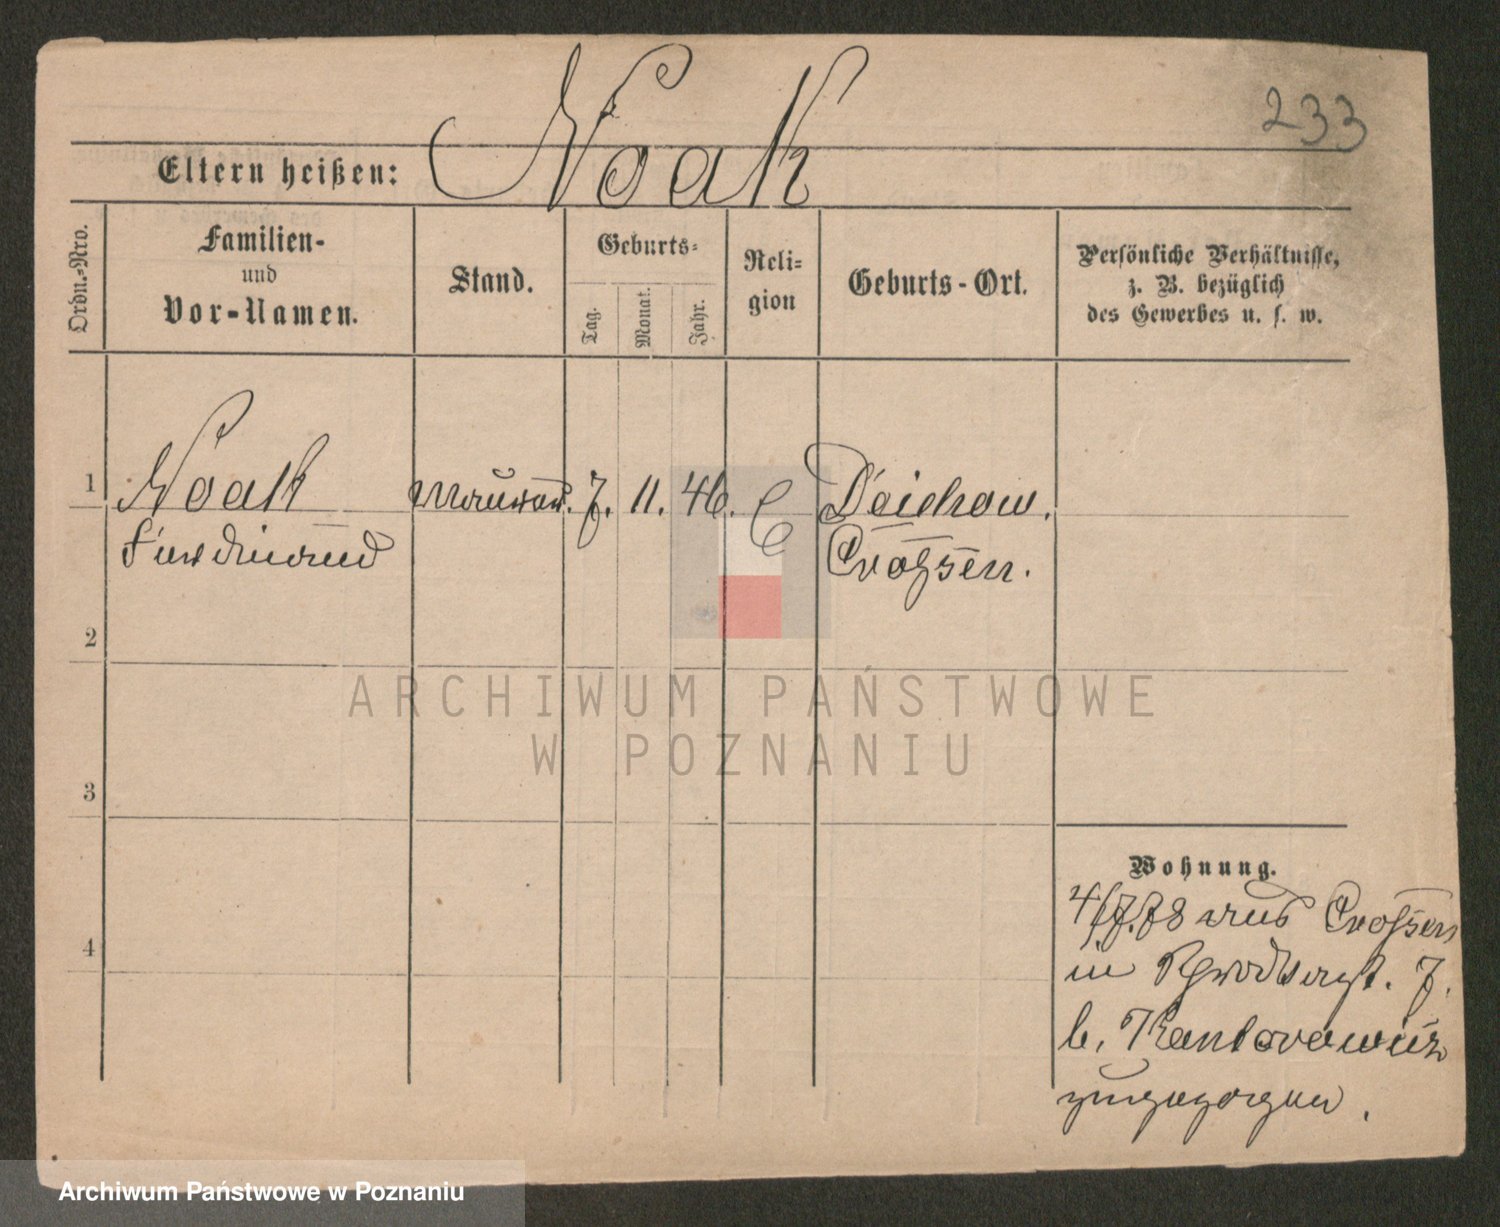 233
Noak
Eltern heißen:
Ordn.-Nro.
Familien-
und
Vor-Namen.
Stand.
Geburts-
Tag.
Monat.
Jahr.
Reli-
gion
Geburts-Ort.
Persönliche Verhältnisse,
z. B. bezüglich
des Gewerbes u. s. w.
1
Noak
Ferdinand
7. 11. 46.
Deichow.
Crossen.
2
3
4
Wohnung.
4/7.78 aus Crossen
in 7.
b. Kantorowicz
zugezogen.
ARCHIWUM PAŃSTWOWE
W POZNANIU
Archiwum Państwowe w Poznaniu